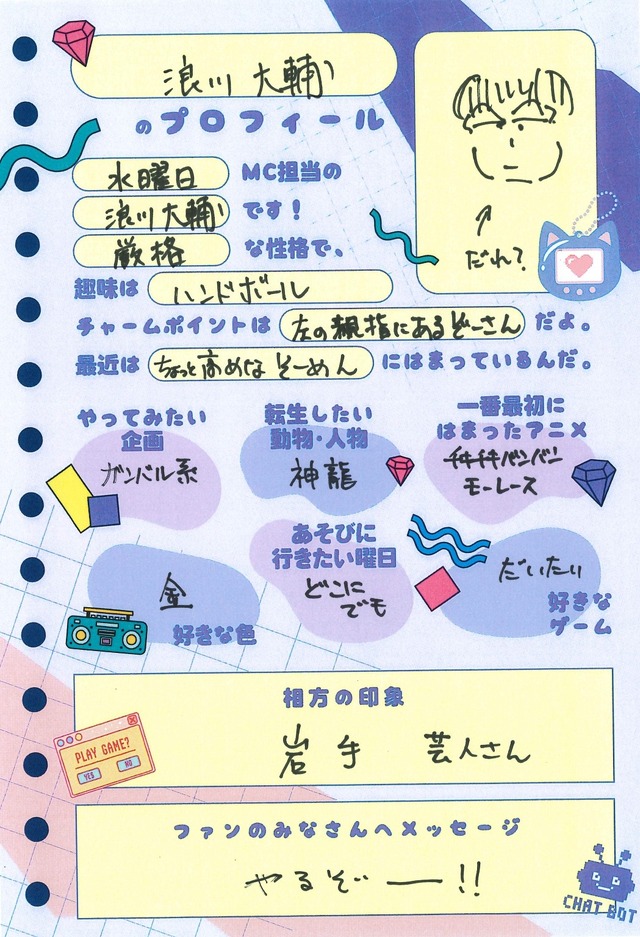 浪川 大輔
のプロフィール
水曜日 MC担当の
浪川大輔 です！
厳格 な性格で、
趣味は ハンドボール
チャームポイントは 左の親指にあるぞーさん だよ。
最近は ちょっと高めなそーめん にはまっているんだ。
だれ？
やってみたい
企画
ガンバル系
転生したい
動物・人物
神龍
一番最初に
はまったアニメ
チキチキバンバン
モーレース
金
好きな色
あそびに
行きたい曜日
どこに
でも
だいたい
好きな
ゲーム
相方の印象
岩手 芸人さん
PLAY GAME?
YES NO
ファンのみなさんへメッセージ
やるぞー!!
CHAT BOT